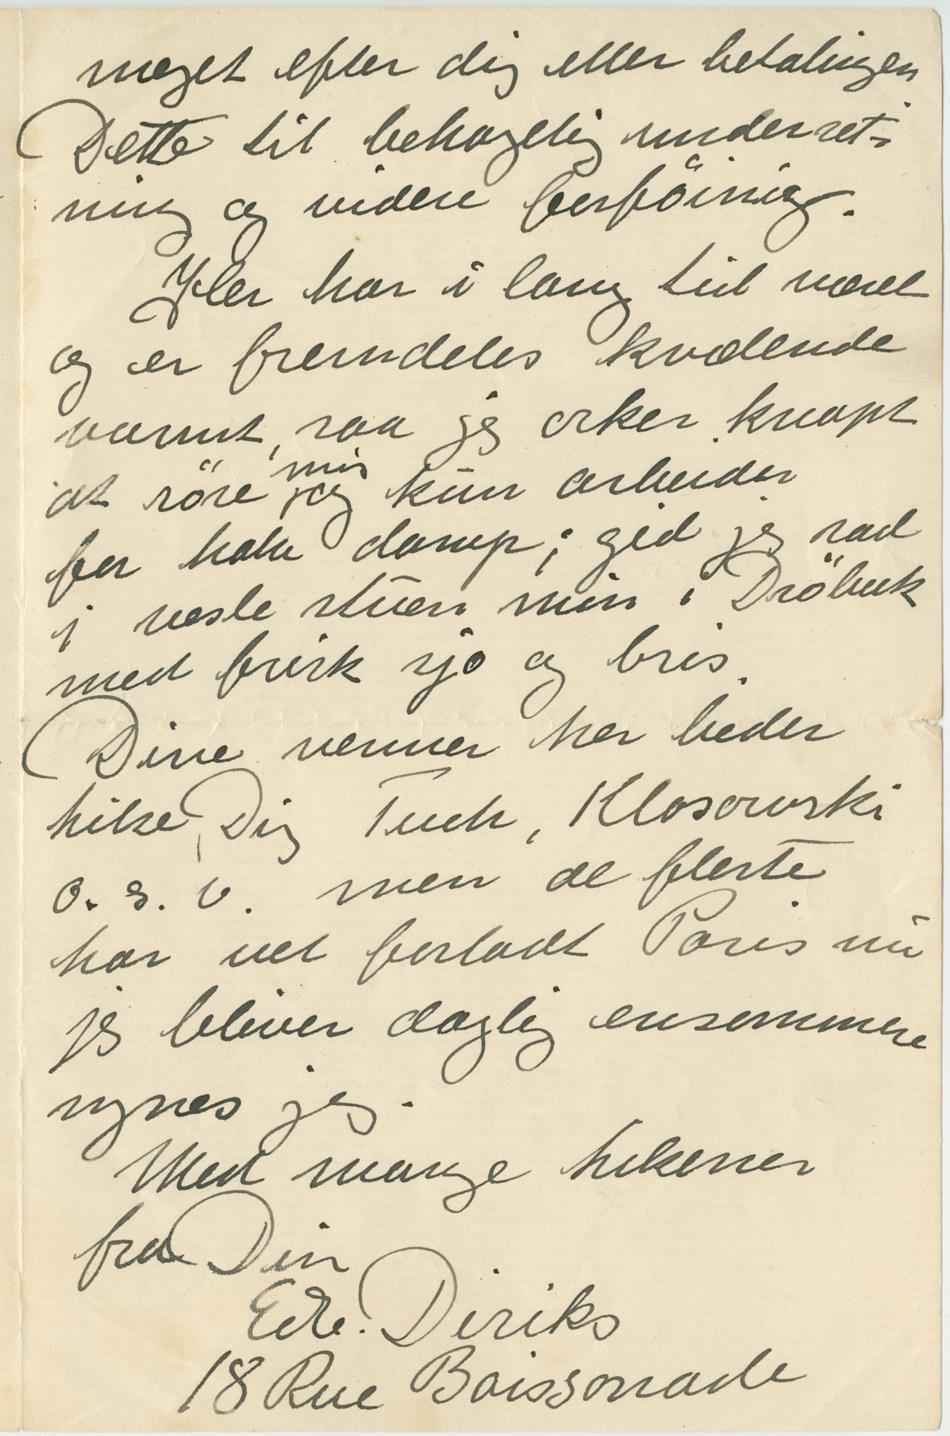 meget efter dig eller betalingen
Dette til behagelig underret-
ning og videre forföining.
Her har i lang tid været
og er fremdeles kvælende
varmt, saa jeg orker knapt
at röre mig
jeg kun arbeider
for halv damp; gid jeg sad
i vesle stuen min i Dröbak
med frisk sjö og bris.
Dine venner her beder
hilse Dig Tuch, Klosowski
o. s. v. men de fleste
har vel forladt Paris nu
jeg bliver daglig ensommere
synes jeg.
Med mange hilsener
fra Din
Edv. Diriks
18 Rue Boissonade